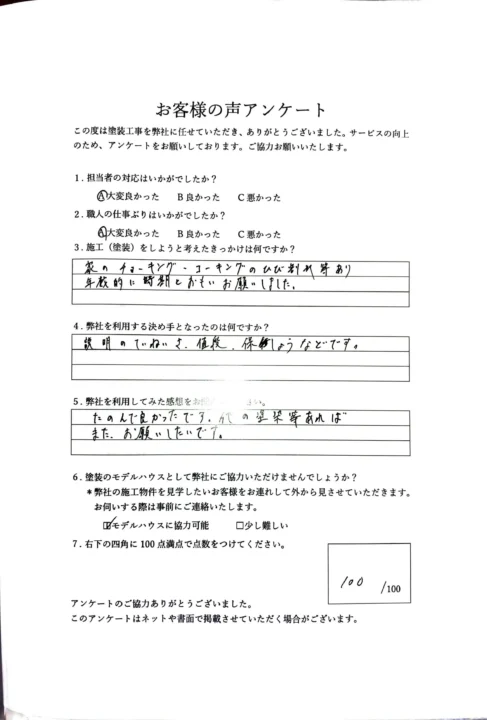 お客様の声アンケート
この度は塗装工事を弊社に任せていただき、ありがとうございました。サービスの向上
のため、アンケートをお願いしております。ご協力お願いいたします。
1．担当者の対応はいかがでしたか？
Ⓐ大変良かった B良かった C悪かった
2．職人の仕事ぶりはいかがでしたか？
Ⓐ大変良かった B良かった C悪かった
3．施工（塗装）をしようと考えたきっかけは何ですか？
家のチョーキング・コーキングのひび割れ等あり
年数的に時期とおもいお願いしました。
4．弊社を利用する決め手となったのは何ですか？
説明のていねいさ、値段、保しょうなどです。
5．弊社を利用してみた感想をお さい。
たのんで良かったです。の塗装等あれば
また、お願いしたいです。
6．塗装のモデルハウスとして弊社にご協力いただけませんでしょうか？
＊弊社の施工物件を見学したいお客様をお連れして外から見させていただきます。
お伺いする際は事前にご連絡いたします。
☑モデルハウスに協力可能 □少し難しい
7．右下の四角に100点満点で点数をつけてください。
100 /100
アンケートのご協力ありがとうございました。
このアンケートはネットや書面で掲載させていただく場合がございます。